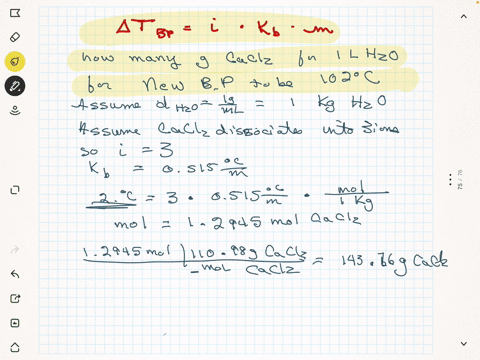 ΔT_BP = i · K_b · m
how many g CaCl2 for 1 L H2O
for New B.P to be 102°C
Assume d H2O = 1g/mL = 1 Kg H2O
Assume CaCl2 dissociates into 3 ions
so i = 3
K_b = 0.515 °C/m
2.°C = 3 · 0.515 °C/m · mol/1 Kg
mol = 1.2945 mol CaCl2
1.2945 mol | 110.98g CaCl2 / mol CaCl2 = 143.66 g CaCl2
75 / 78